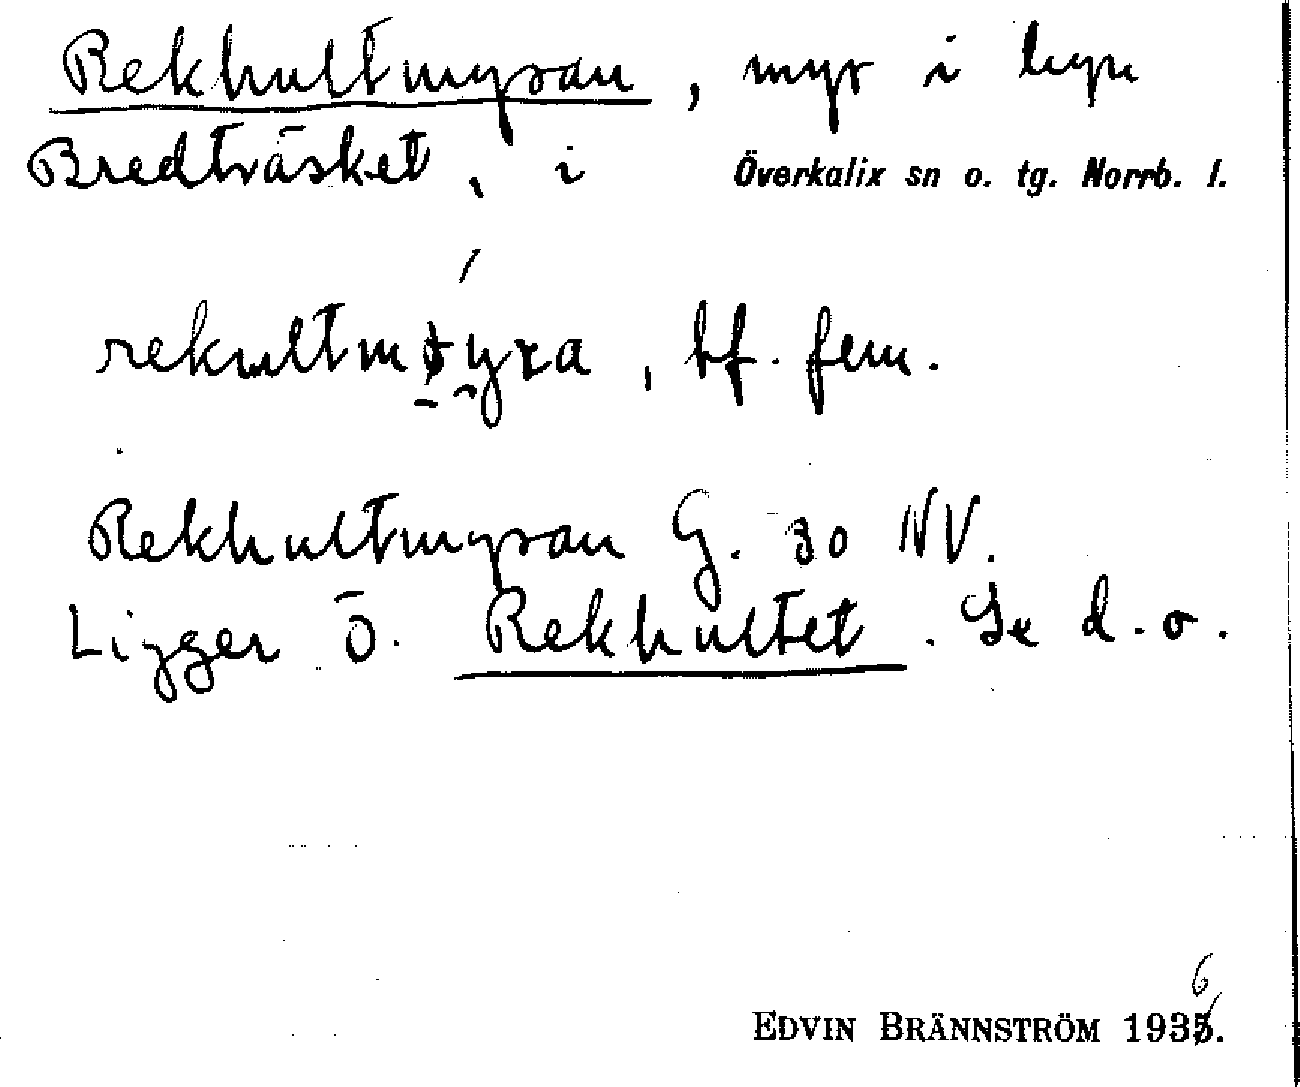 Rekhultmyran, myr i byn
Bredträsket, i Överkalix sn o. tg. Norrb. l.
rekultmøyra, bf. fem.
Rekhultmyran G. 30 NV.
Ligger Ö. Rekhultet. Se d.o.
6
EDVIN BRÄNNSTRÖM 1935.